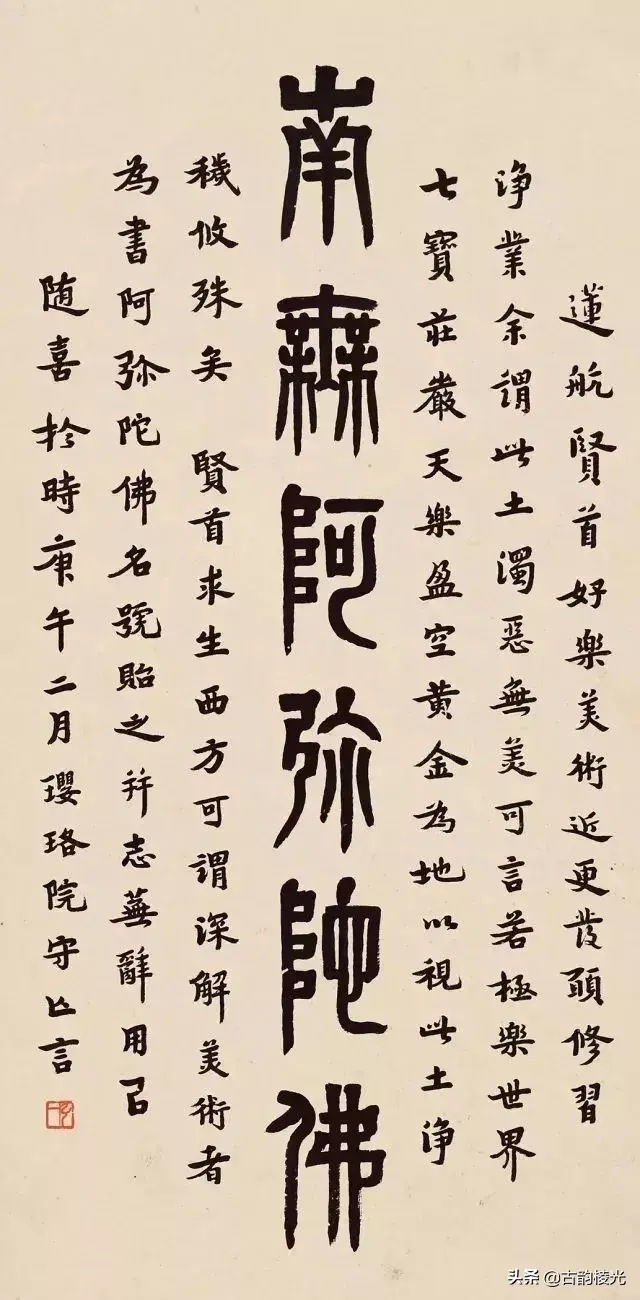 南無阿弥陀佛
蓮航賢首好樂美術近更發願修習
淨業余謂此土濁惡無美可言若極樂世界
七寶莊嚴天樂盈空黃金為地以視此土淨
穢攸殊矣 賢首求生西方可謂深解美術者
為書阿弥陀佛名號貽之并志蕪辭用㠯
随喜於時庚午二月瓔珞院守亾言
头条 @古韵棱光